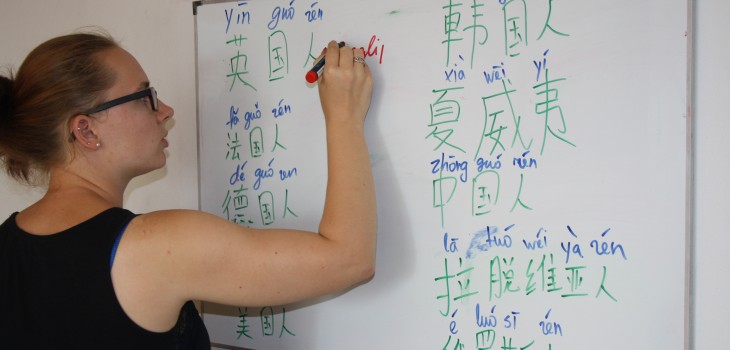 yīn guó rén
英国人
fǎ guó rén
法国人
dé guó ren
德国人
美国人
韩国人
xià wēi yí
夏威夷
zhōng guó rén
中国人
lā tuó wéi yà rén
拉脱维亚人
é luó sī rén